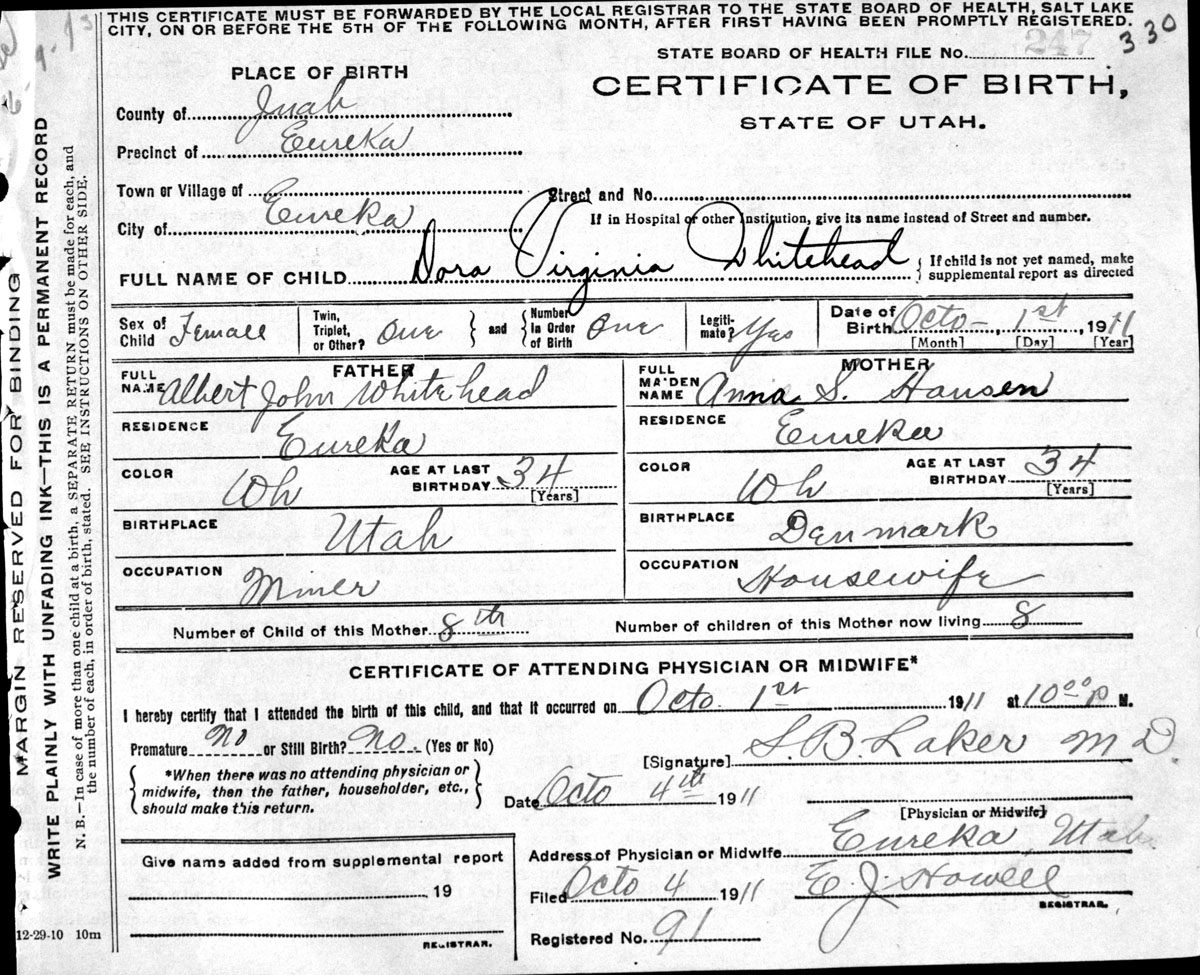 THIS CERTIFICATE MUST BE FORWARDED BY THE LOCAL REGISTRAR TO THE STATE BOARD OF HEALTH, SALT LAKE
CITY, ON OR BEFORE THE 5TH OF THE FOLLOWING MONTH, AFTER FIRST HAVING BEEN PROMPTLY REGISTERED.
330
STATE BOARD OF HEALTH FILE No. 247
PLACE OF BIRTH
CERTIFICATE OF BIRTH,
STATE OF UTAH.
County of Juab
Precinct of Eureka
Town or Village of
Street and No.
City of Eureka
If in Hospital or other Institution, give its name instead of Street and number.
FULL NAME OF CHILD Dora Virginia Whitehead { If child is not yet named, make
supplemental report as directed
Sex of Child Female
Twin, Triplet, or Other? One } and { Number In Order of Birth One
Legiti-mate? Yes
Date of Birth Octo-, 1st, 1911
[Month] [Day] [Year]
FATHER
FULL NAME Albert John Whitehead
RESIDENCE Eureka
COLOR Wh AGE AT LAST BIRTHDAY 34
[Years]
BIRTHPLACE Utah
OCCUPATION Miner
MOTHER
FULL MAIDEN NAME Anna S. Hansen
RESIDENCE Eureka
COLOR Wh AGE AT LAST BIRTHDAY 34
[Years]
BIRTHPLACE Denmark
OCCUPATION Housewife
Number of Child of this Mother 8th Number of children of this Mother now living 8
CERTIFICATE OF ATTENDING PHYSICIAN OR MIDWIFE*
I hereby certify that I attended the birth of this child, and that it occurred on Octo. 1st 1911 at 10 00 p M.
Premature No or Still Birth? No. (Yes or No)
[Signature] S. B. Laker M D.
{ *When there was no attending physician or
midwife, then the father, householder, etc.,
should make this return. }
Date Octo 4th 1911
[Physician or Midwife]
Address of Physician or Midwife Eureka, Utah
Filed Octo 4 1911 E J. Howell
REGISTRAR.
Registered No. 91
Give name added from supplemental report
19
REGISTRAR.
12-29-10 10m
MARGIN RESERVED FOR BINDING
WRITE PLAINLY WITH UNFADING INK—THIS IS A PERMANENT RECORD
N. B.—In case of more than one child at a birth, a SEPARATE RETURN must be made for each, and
the number of each, in order of birth, stated. SEE INSTRUCTIONS ON OTHER SIDE.